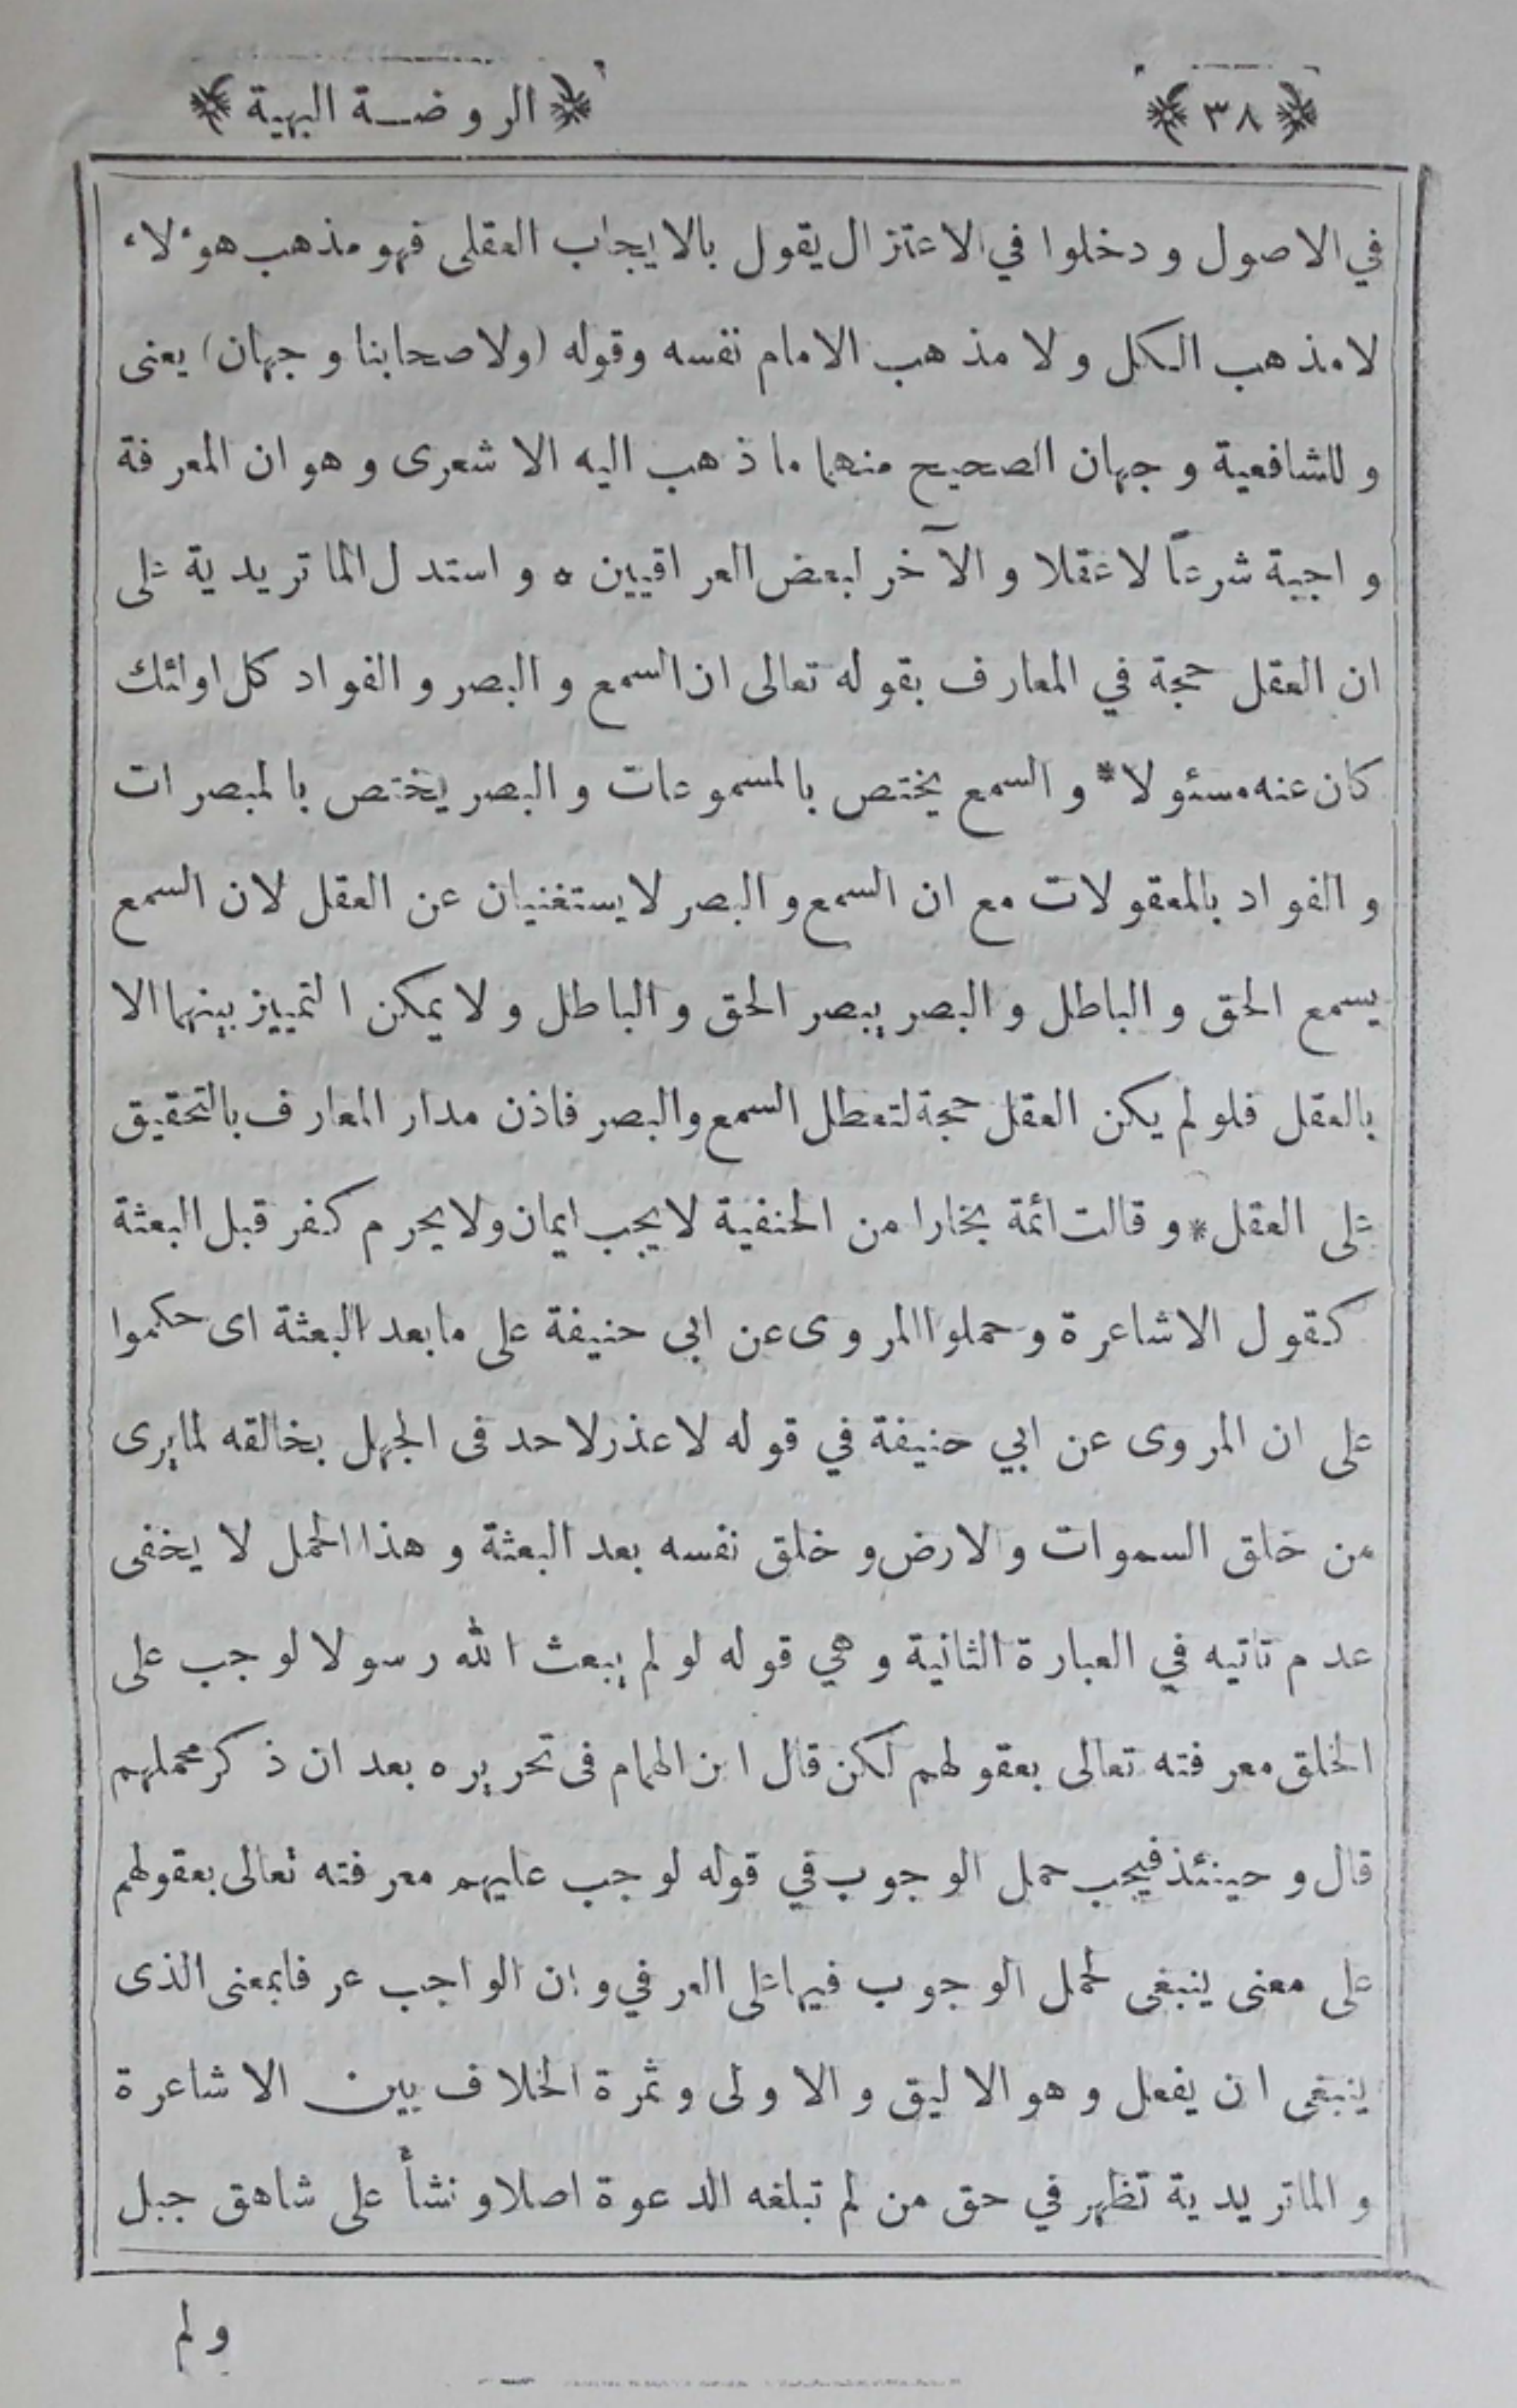 ﴿ ٣٨ ﴾ ﴿ الروضة البهية ﴾
في الاصول ودخلوا في الاعتزال يقول بالايجاب العقلى فهو مذهب هوٴلاء
لامذهب الكل ولا مذهب الامام نفسه وقوله (ولاصحابنا وجهان) يعنى
وللشافعية وجهان الصحيح منهما ماذهب اليه الاشعرى وهو ان المعرفة
واجبة شرعاً لاعقلا والآخر لبعض العراقيين ٥ واستدل الماتريدية على
ان العقل حجة في المعارف بقوله تعالى ان السمع والبصر والفواد كل اولئك
كان عنه مسئولا * والسمع يختص بالمسموعات والبصر يختص بالمبصرات
والفواد بالمعقولات مع ان السمع والبصر لايستغنيان عن العقل لان السمع
يسمع الحق والباطل والبصر يبصر الحق والباطل ولا يمكن التمييز بينهما الا
بالعقل فلو لم يكن العقل حجة لتعطل السمع والبصر فاذن مدار المعارف بالتحقيق
على العقل * وقالت ائمة بخارا من الحنفية لايجب ايمان ولايحرم كفر قبل البعثة
كقول الاشاعرة وحملوا المروى عن ابى حنيفة على مابعد البعثة اى حكموا
على ان المروى عن ابي حنيفة في قوله لاعذر لاحد فى الجهل بخالقه لمايرى
من خلق السموات والارض وخلق نفسه بعد البعثة وهذا الحمل لا يخفى
عدم تاتيه في العبارة الثانية وهي قوله لو لم يبعث الله رسولا لوجب على
الخلق معرفته تعالى بعقولهم لكن قال ابن الهمام فى تحريره بعد ان ذكر محملهم
قال وحينئذ فيجب حمل الوجوب في قوله لوجب عليهم معرفته تعالى بعقولهم
على معنى ينبغى لحمل الوجوب فيها على العرفي وان الواجب عرفا بمعنى الذى
ينبغى ان يفعل وهو الاليق والاولى وثمرة الخلاف بين الاشاعرة
والماتريدية تظهر في حق من لم تبلغه الدعوة اصلا ونشأ على شاهق جبل
ولم